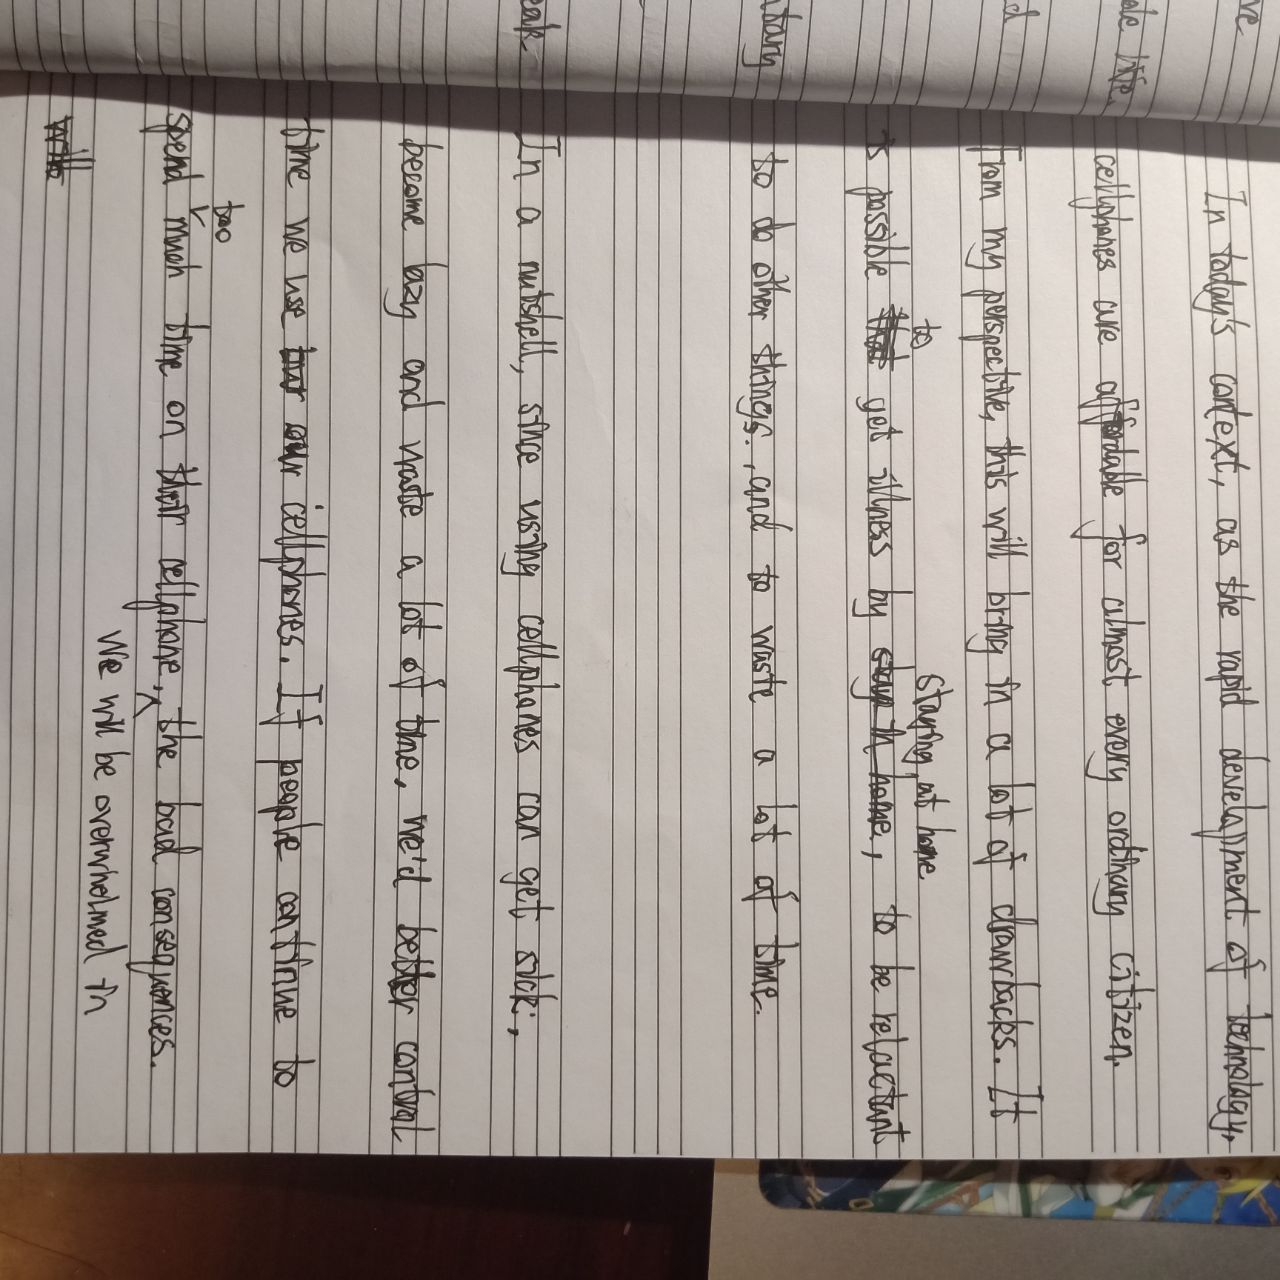 ve
ple like.
d
ntary
eak
In today's context, as the rapid development of technology,
cellphones are affordable for almost every ordinary citizen.
From my perspective, this will bring in a lot of drawbacks. It
is possible to get illness by staying at home, to be reluctant
to do other things, and to waste a lot of time.
In a nutshell, since using cellphones can get sick,
become lazy and waste a lot of time, we'd better control
time we use our cellphones. If people continue to
spend too much time on their cellphone, We will be overwhelmed in the bad consequences.